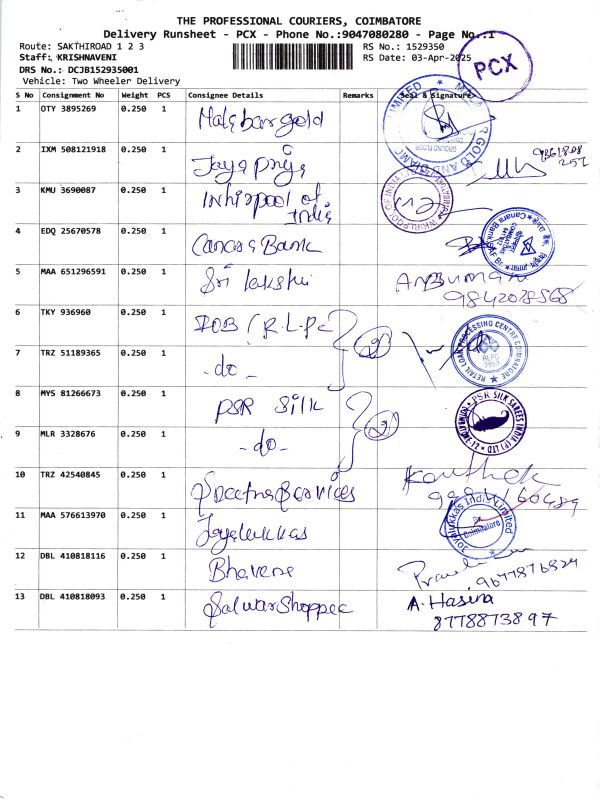 THE PROFESSIONAL COURIERS, COIMBATORE
Delivery Runsheet - PCX - Phone No.:9047080280 - Page No.:1
Route: SAKTHIROAD 1 2 3
RS No.: 1529350
Staff: KRISHNAVENI
RS Date: 03-Apr-2025
DRS No.: DCJB152935001
Vehicle: Two Wheeler Delivery
PCX
S No Consignment No Weight PCS Consignee Details Remarks Seal & Signature
1 OTY 3895269 0.250 1 Malabar gold
2 IXM 508121918 0.250 1 Jaya Priya
3 KMU 3690087 0.250 1 Whirlpool of
India
4 EDQ 25670578 0.250 1 Canara Bank
5 MAA 651296591 0.250 1 Sri lakshi
9842028568
6 TKY 936960 0.250 1 IOB (R.L.P.C
7 TRZ 51189365 0.250 1 -do-
2
RETAIL LOAN PROCESSING CENTRE COIMBATORE
RLPC
8 MYS 81266673 0.250 1 PSR Silk
9 MLR 3328676 0.250 1 -do-
2
PSR SILK SAREES INDIA (P) LTD
10 TRZ 42540845 0.250 1
Karthik
11 MAA 576613970 0.250 1 Joyalukkas
Joyalukkas India Limited
Coimbatore
12 DBL 410818116 0.250 1 Bhavene
9677876824
13 DBL 410818093 0.250 1 Salwar Shoppee A. Hasina
8778873897